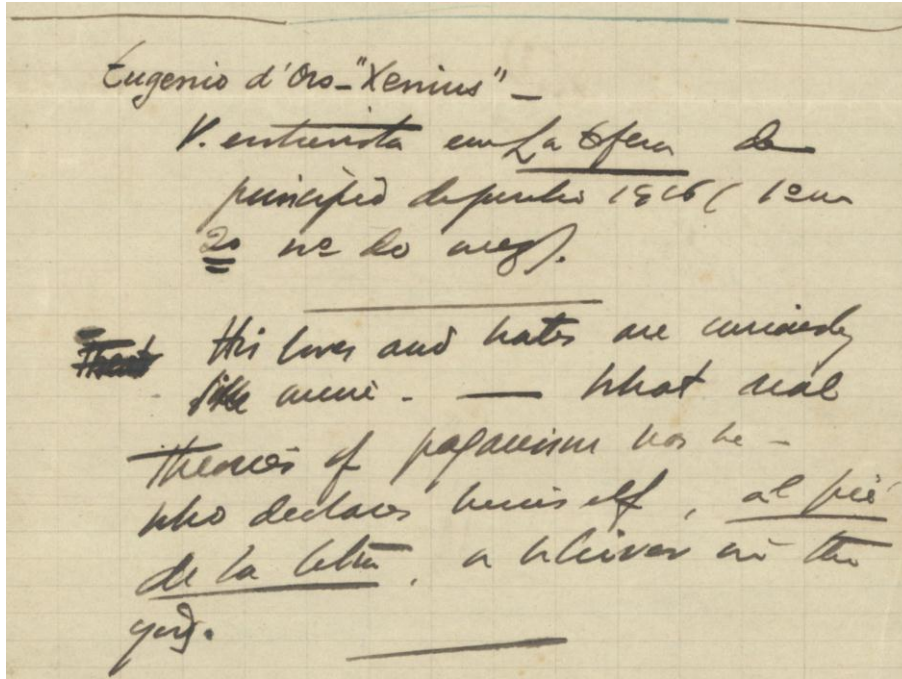 Eugenio d'Ors – "Xenius" –
V. entrevista em La Esfera de
principio de junho 1916 (1º ou
2º nº do mez).
His loves and hates are curiously
like mine. — What real
theories of paganism has he –
who declares himself, al pié
de la letra, a believer in the
gods.